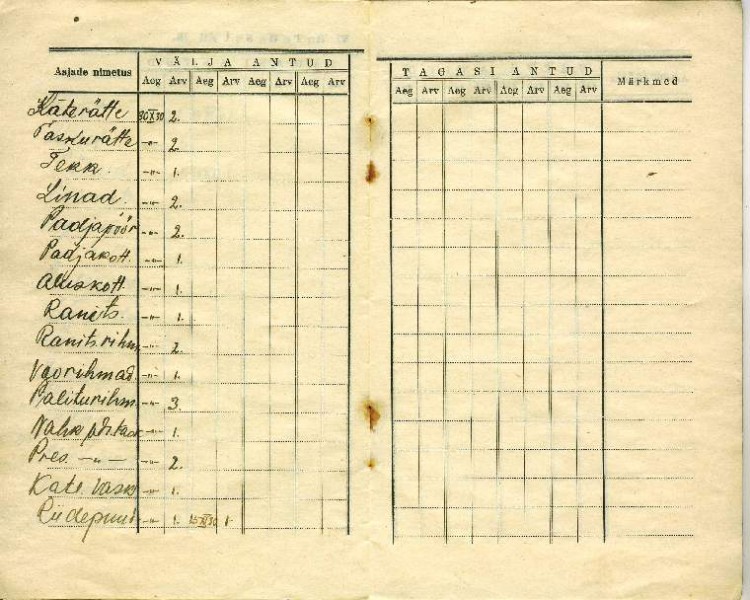 VÄLJA ANTUD
Asjade nimetus
Aeg Arv Aeg Arv Aeg Arv Aeg Arv
Käterätte 30 X 30 2.
Taskurätte -"- 2
Tekk. -"- 1.
Linad. -"- 2.
Padjapöör -"- 2.
Padjakott. -"- 1.
Aluskott -"- 1.
Ranits. -"- 1.
Ranitsrihm -"- 2.
Voorihmad. -"- 1.
Paliturihm -"- 3.
Nahk -"- 1.
Pres. -"- -"- 2.
Kate -"- 1.
Riidepuu -"- 1. 1
TAGASI ANTUD
Aeg Arv Aeg Arv Aeg Arv Aeg Arv
Märkmed